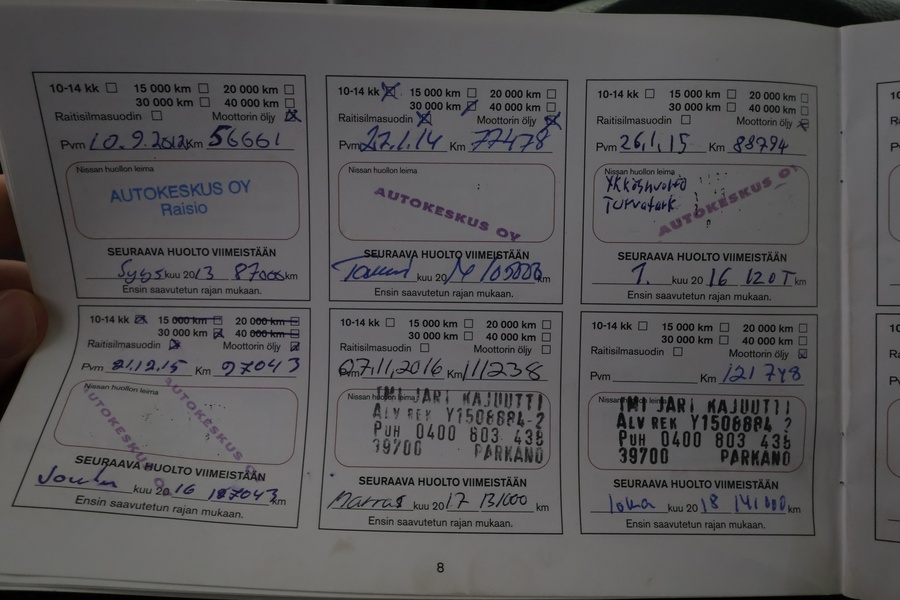 10-14 kk 15 000 km 20 000 km
30 000 km 40 000 km
Raitisilmasuodin Moottorin öljy
Pvm 10.9.2012 Km 56661
Nissan huollon leima
AUTOKESKUS OY
Raisio
SEURAAVA HUOLTO VIIMEISTÄÄN
Syys kuu 2013 87000 km
Ensin saavutetun rajan mukaan.
10-14 kk 15 000 km 20 000 km
30 000 km 40 000 km
Raitisilmasuodin Moottorin öljy
Pvm 22.1.14 Km 77478
Nissan huollon leima
AUTOKESKUS OY
SEURAAVA HUOLTO VIIMEISTÄÄN
kuu 20 km
Ensin saavutetun rajan mukaan.
10-14 kk 15 000 km 20 000 km
30 000 km 40 000 km
Raitisilmasuodin Moottorin öljy
Pvm 26.1.15 Km 88794
Nissan huollon leima
Turvatark
AUTOKESKUS OY
SEURAAVA HUOLTO VIIMEISTÄÄN
1. kuu 2016 120T km
Ensin saavutetun rajan mukaan.
10-14 kk 15 000 km 20 000 km
30 000 km 40 000 km
Raitisilmasuodin Moottorin öljy
Pvm 21.12.15 Km 97043
Nissan huollon leima
AUTOKESKUS OY
AUTOKESKUS O
SEURAAVA HUOLTO VIIMEISTÄÄN
Joulu kuu 2016 km
Ensin saavutetun rajan mukaan.
10-14 kk 15 000 km 20 000 km
30 000 km 40 000 km
Raitisilmasuodin Moottorin öljy
Pvm 07.11.2016 Km 111238
Nissan huollon leima
TMI JARI KAJUUTTI
ALV REK Y1506884-2
PUH 0400 803 438
39700 PARKANO
SEURAAVA HUOLTO VIIMEISTÄÄN
Marras kuu 2017 131000 km
Ensin saavutetun rajan mukaan.
10-14 kk 15 000 km 20 000 km
30 000 km 40 000 km
Raitisilmasuodin Moottorin öljy
Pvm Km 121748
Nissan huollon leima
TMI JARI KAJUUTTI
ALV REK Y1506884 2
PUH 0400 803 438
39700 PARKANO
SEURAAVA HUOLTO VIIMEISTÄÄN
loka kuu 2018 141000 km
Ensin saavutetun rajan mukaan.
8